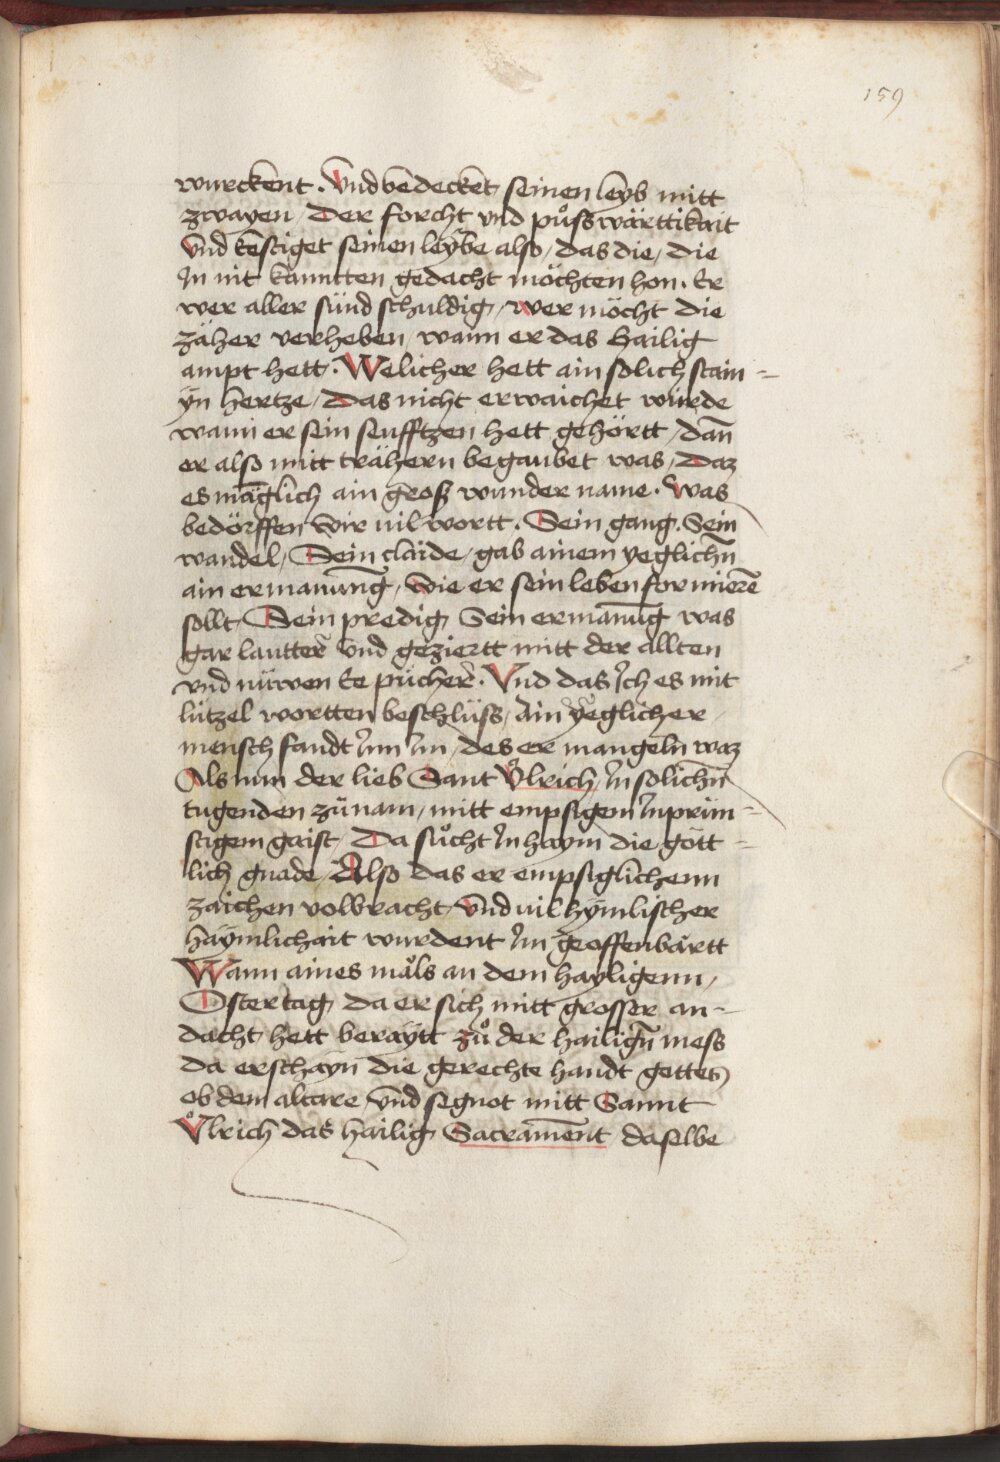 159
wurckent. Vnd bedecket seinen leyb mitt
zwayen / Der forcht vnd půßwärttikait
Vnd kestiget seinen leybe also / das die / die
Jn nit kanntten gedacht möchten hon. Er
wer aller sünd schuldig / wer möcht die
zäher verheben / wann er das Hailig
ampt hett. Welicher hett ain solich stain =
yn hertze / Das nicht erwaichet würde
wann er sein seufftzen hett gehörtt / dan̄
er also mitt trähern begaubet was / Daz
es mäglich ain groß wunder name. Was
bedörffen wir vil wortt. Sein gang. Sein
wandel / Sein claide / gab ainem yeglichn̄
ain ermanūng / wie er sein leben formierē
sollt / Sein predig Sein ermanūng was
gar lautter vnd geziertt mitt der allten
vnd nüwen Ee pücher. Vnd das Jch es mit
lützel wortten beschlüss / Ain yeglicher
mensch fandt Jnn Jm / des er mangeln waz
Als nun der lieb Sant Vͦlrich / Jn solichn̄
tugenden zůnam / mitt empsigem Jnprün =
stigem gaist / Da sůcht Jn haym die gött =
lich gnade / Also das er empsiglichenn
zaichen volbracht / Vnd vil hymlischer
haymlichait wurdent Jm geoffenbärtt
Wann aines mǎls an dem hayligenn /
Ostertag / da er sich mitt grosser an =
dacht hett beraytt zů der hailign̄ mess
da erschayn die gerechte handt gottes
ob dem altare / Vnd segnot mitt Sannt
Vͦlrich das hailig Sacrament daselbe